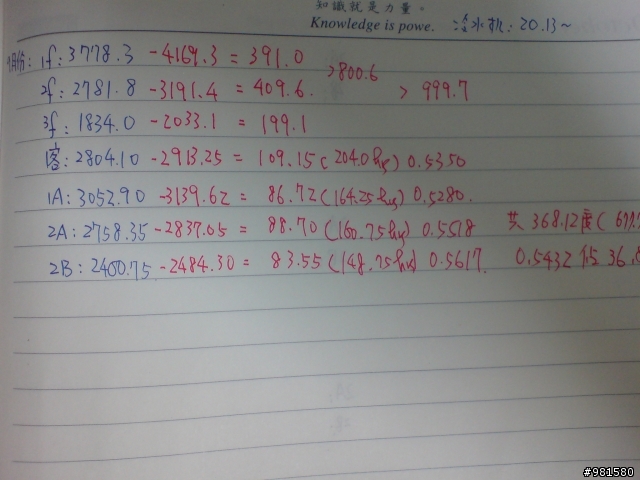 知識就是力量。
Knowledge is powe. 冷水机: 20.13~
月份: 1f: 3778.3 -4169.3 = 391.0
>800.6
2f: 2781.8 -3191.4 = 409.6. > 999.7
3f: 1834.0 -2033.1 = 199.1
客: 2804.10 -2913.25 = 109.15 (204.0hrs) 0.5350
1A: 3052.90 -3139.62 = 86.72 (164.25hrs) 0.5280.
2A: 2758.35 -2837.05 = 88.70 (160.75hrs) 0.5518 共 368.12度(
2B: 2400.75 -2484.30 = 83.55 (148.75hrs) 0.5617. 0.5432 佔 36.
#981580